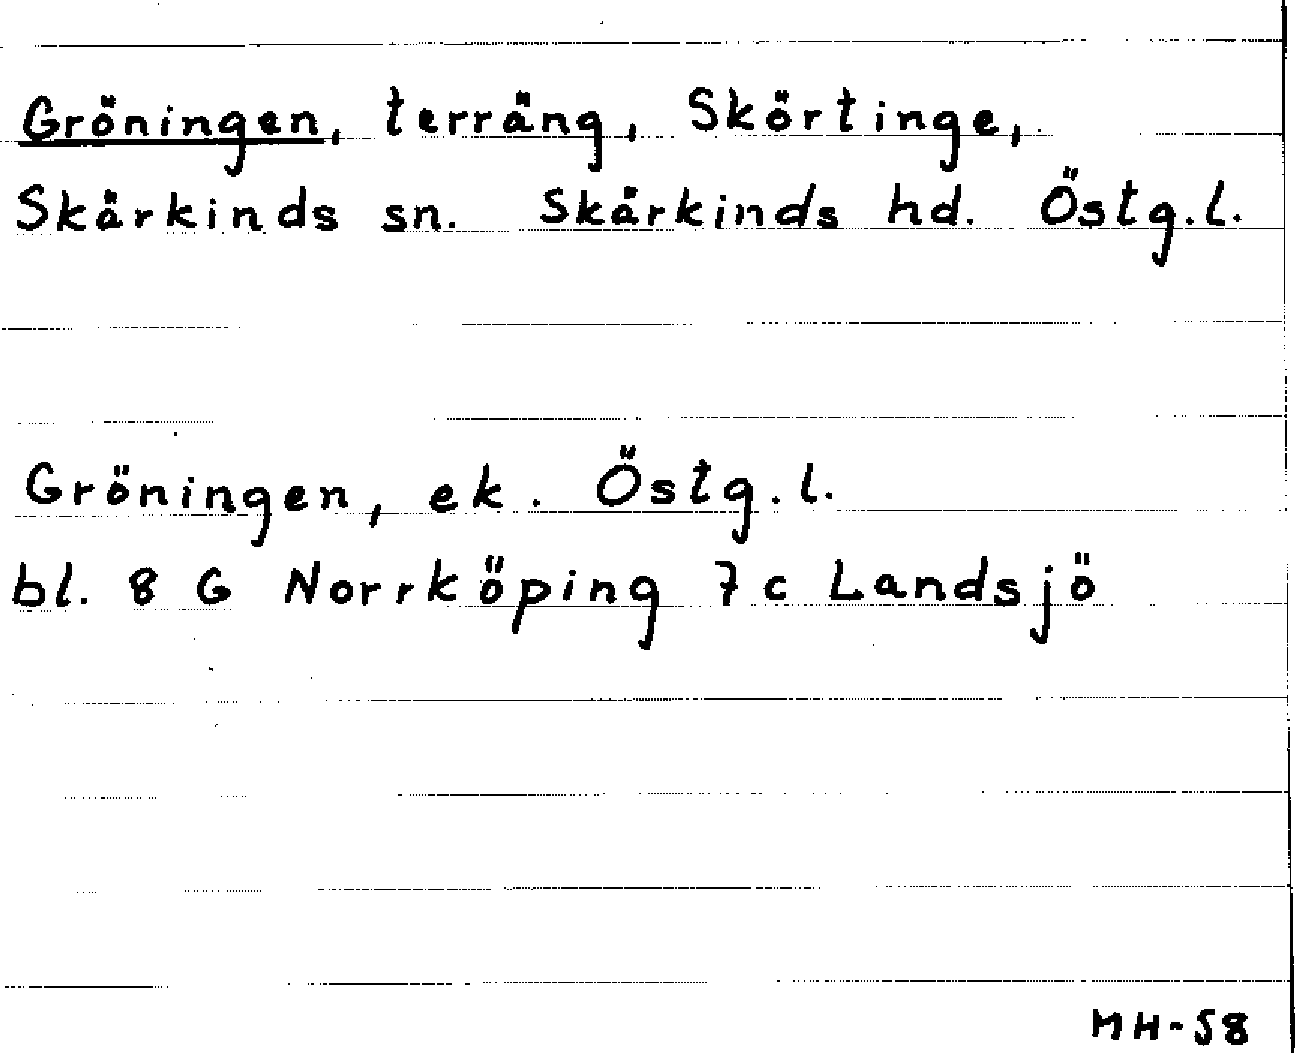 Gröningen, terräng, Skörtinge,
Skärkinds sn. Skärkinds hd. Östg.l.
Gröningen, ek. Östg.l.
bl. 8 G Norrköping 7c Landsjö
MH-58